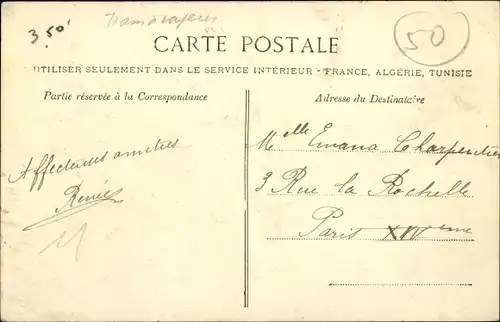 3.50
50
CARTE POSTALE
UTILISER SEULEMENT DANS LE SERVICE INTÉRIEUR - FRANCE, ALGÉRIE, TUNISIE
Partie réservée à la Correspondance
Adresse du Destinataire
Affectueuses amitiés
Renée
Melle Emana Charpentier
3 Rue la Rochelle
Paris XIVeme